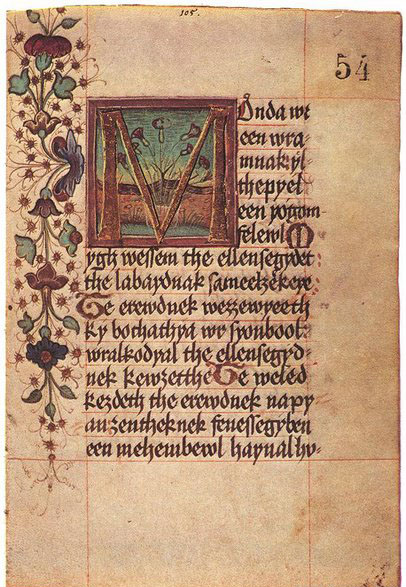 105.
54
MOnda wr
een wra-
mnak yl-
thepyel
een yogom-
felewl M
ygh wessem the ellensegydet
the labaydnak sameelzekeye.
Te erewdnek wezzewyeeth
ky bochathya wr syonbool:
wralkodyal the ellensegyd-
nek kewzetthe Te weled
kezdeth the erewdnek napy
an zentheknek fenessegyben
een mehembewl haynalhv-